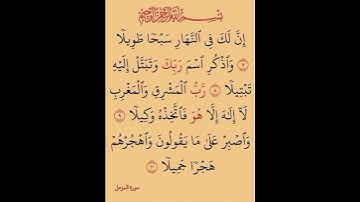 بِسْمِ اللَّهِ الرَّحْمَٰنِ الرَّحِيمِ
إِنَّ لَكَ فِى النَّهَارِ سَبْحًا طَوِيلًا
٧ وَاذْكُرِ اسْمَ رَبِّكَ وَتَبَتَّلْ إِلَيْهِ
تَبْتِيلًا ٨ رَّبُّ الْمَشْرِقِ وَالْمَغْرِبِ
لَآ إِلَٰهَ إِلَّا هُوَ فَاتَّخِذْهُ وَكِيلًا ٩
وَاصْبِرْ عَلَىٰ مَا يَقُولُونَ وَاهْجُرْهُمْ
هَجْرًا جَمِيلًا ١٠
سورة المزمل